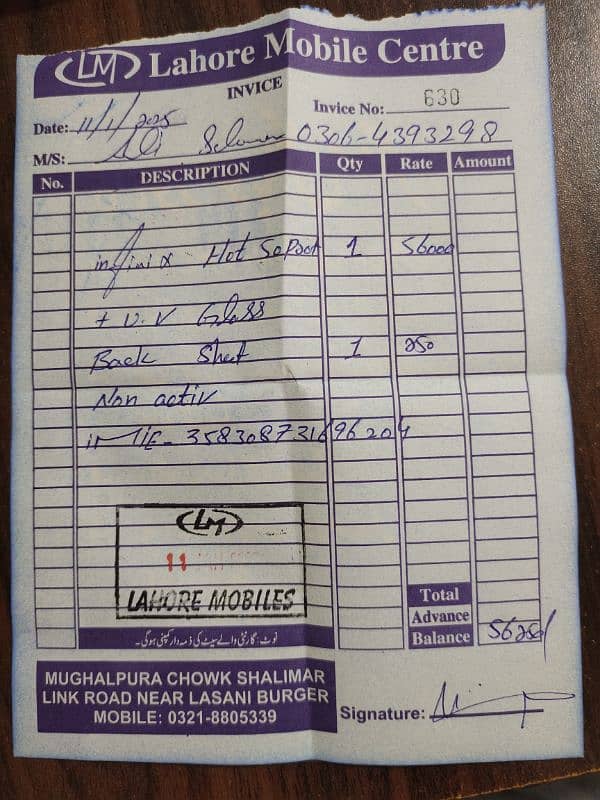 LM Lahore Mobile Centre
INVICE
Date: 11/1/2025 Invice No: 630
M/S: Ali Salman 0306-4393298
No. DESCRIPTION Qty Rate Amount
infinix Hot 50 Pro+ 1 56000
+ U.V Glass
Back Sheet 1 250
Non activ
iMiE- 358308731696204
LM
11
LAHORE MOBILES
Total
Advance
Balance 56250/
نوٹ: گارنٹی والے سیٹ کی ذمہ دار کمپنی ہوگی۔
MUGHALPURA CHOWK SHALIMAR
LINK ROAD NEAR LASANI BURGER
MOBILE: 0321-8805339
Signature: